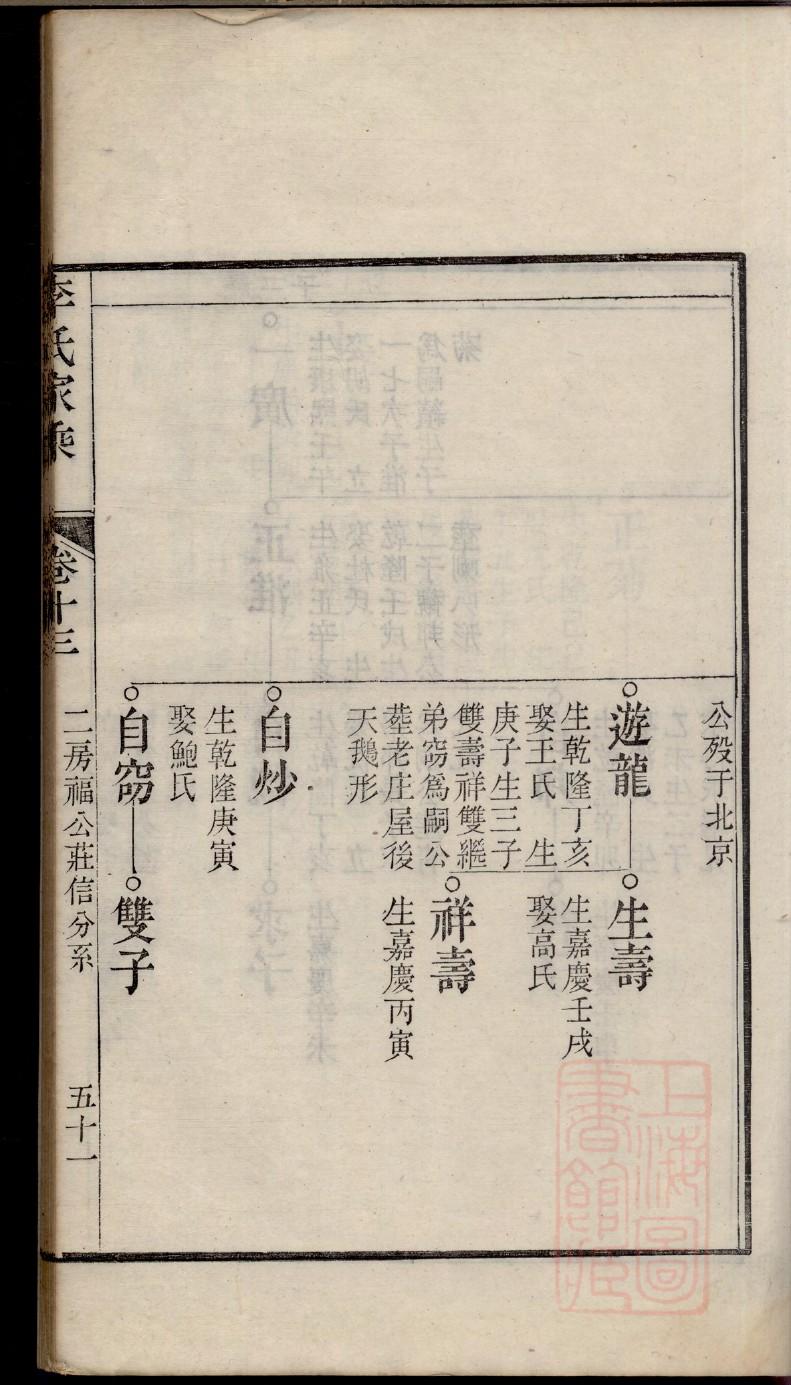 公歿于北京
遊龍
生乾隆丁亥
娶王氏　生
庚子生三子
雙壽祥雙繼
弟窃爲嗣公
塟老庄屋後
天鵝形
生壽
生嘉慶壬戌
娶高氏
祥壽
生嘉慶丙寅
自炒
生乾隆庚寅
娶鮑氏
自窃
雙子
李氏家乘
卷十三
二房福公莊信分系
五十一
上海圖
書館藏